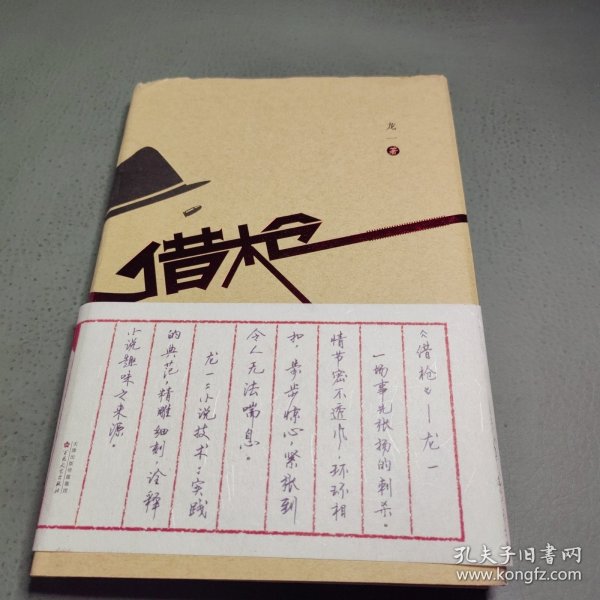 龙一 著
借枪
《借枪》—龙一
一场事先张扬的刺杀。
情节密不透风,环环相
扣,步步惊心,紧张到
令人无法喘息。
龙一“小说技术”实践
的典范,精雕细刻,诠释
小说趣味之来源。
天津出版传媒集团
百花文艺出版社
孔夫子旧书网
www.kongfz.com